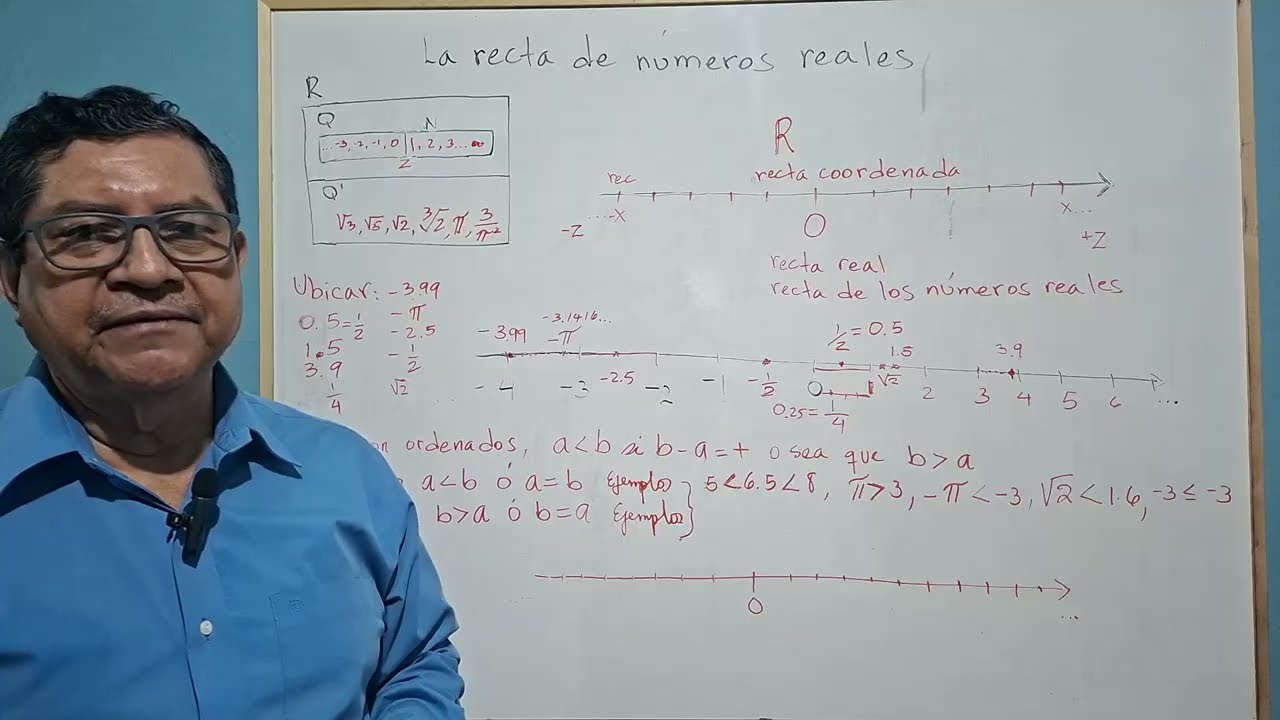 La recta de números reales
R
Q N
...-3,-2,-1,0 1, 2, 3...∞
Z
Q'
√3, √5, √2, ∛2, π, 3/π²
R
rec recta coordenada
....-X 0 X...
-Z +Z
recta real
recta de los números reales
Ubicar: -3.99
0.5=1/2 -π
1.5 -2.5
3.9 -1/2
1/4 √2
-3.99 -3.1416... -π 1/2=0.5 1.5 3.9
-4 -3 -2.5 -2 -1 -1/2 0 √2 2 3 4 5 6 ...
0.25=1/4
ordenados, a<b si b-a=+ o sea que b>a
a<b ó a=b Ejemplos } 5<6.5<8, π>3, -π<-3, √2<1.6, -3≤-3
b>a ó b=a Ejemplos }
0 ...